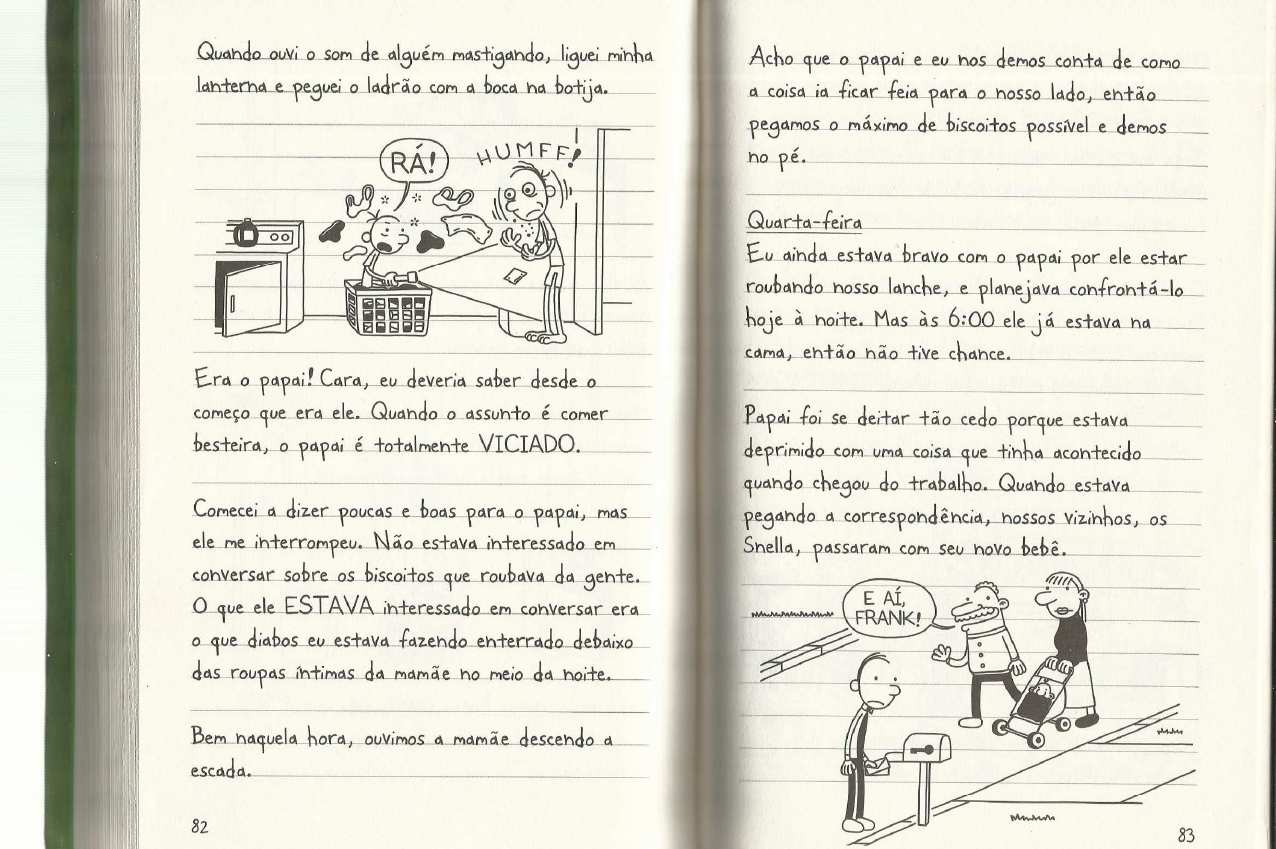 Quando ouvi o som de alguém mastigando, liguei minha
lanterna e peguei o ladrão com a boca na botija.
RÁ!
HUMFF!
Era o papai! Cara, eu deveria saber desde o
começo que era ele. Quando o assunto é comer
besteira, o papai é totalmente VICIADO.
Comecei a dizer poucas e boas para o papai, mas
ele me interrompeu. Não estava interessado em
conversar sobre os biscoitos que roubava da gente.
O que ele ESTAVA interessado em conversar era
o que diabos eu estava fazendo enterrado debaixo
das roupas íntimas da mamãe no meio da noite.
Bem naquela hora, ouvimos a mamãe descendo a
escada.
82
Acho que o papai e eu nos demos conta de como
a coisa ia ficar feia para o nosso lado, então
pegamos o máximo de biscoitos possível e demos
no pé.
Quarta-feira
Eu ainda estava bravo com o papai por ele estar
roubando nosso lanche, e planejava confrontá-lo
hoje à noite. Mas às 6:00 ele já estava na
cama, então não tive chance.
Papai foi se deitar tão cedo porque estava
deprimido com uma coisa que tinha acontecido
quando chegou do trabalho. Quando estava
pegando a correspondência, nossos vizinhos, os
Snella, passaram com seu novo bebê.
E AÍ,
FRANK!
83